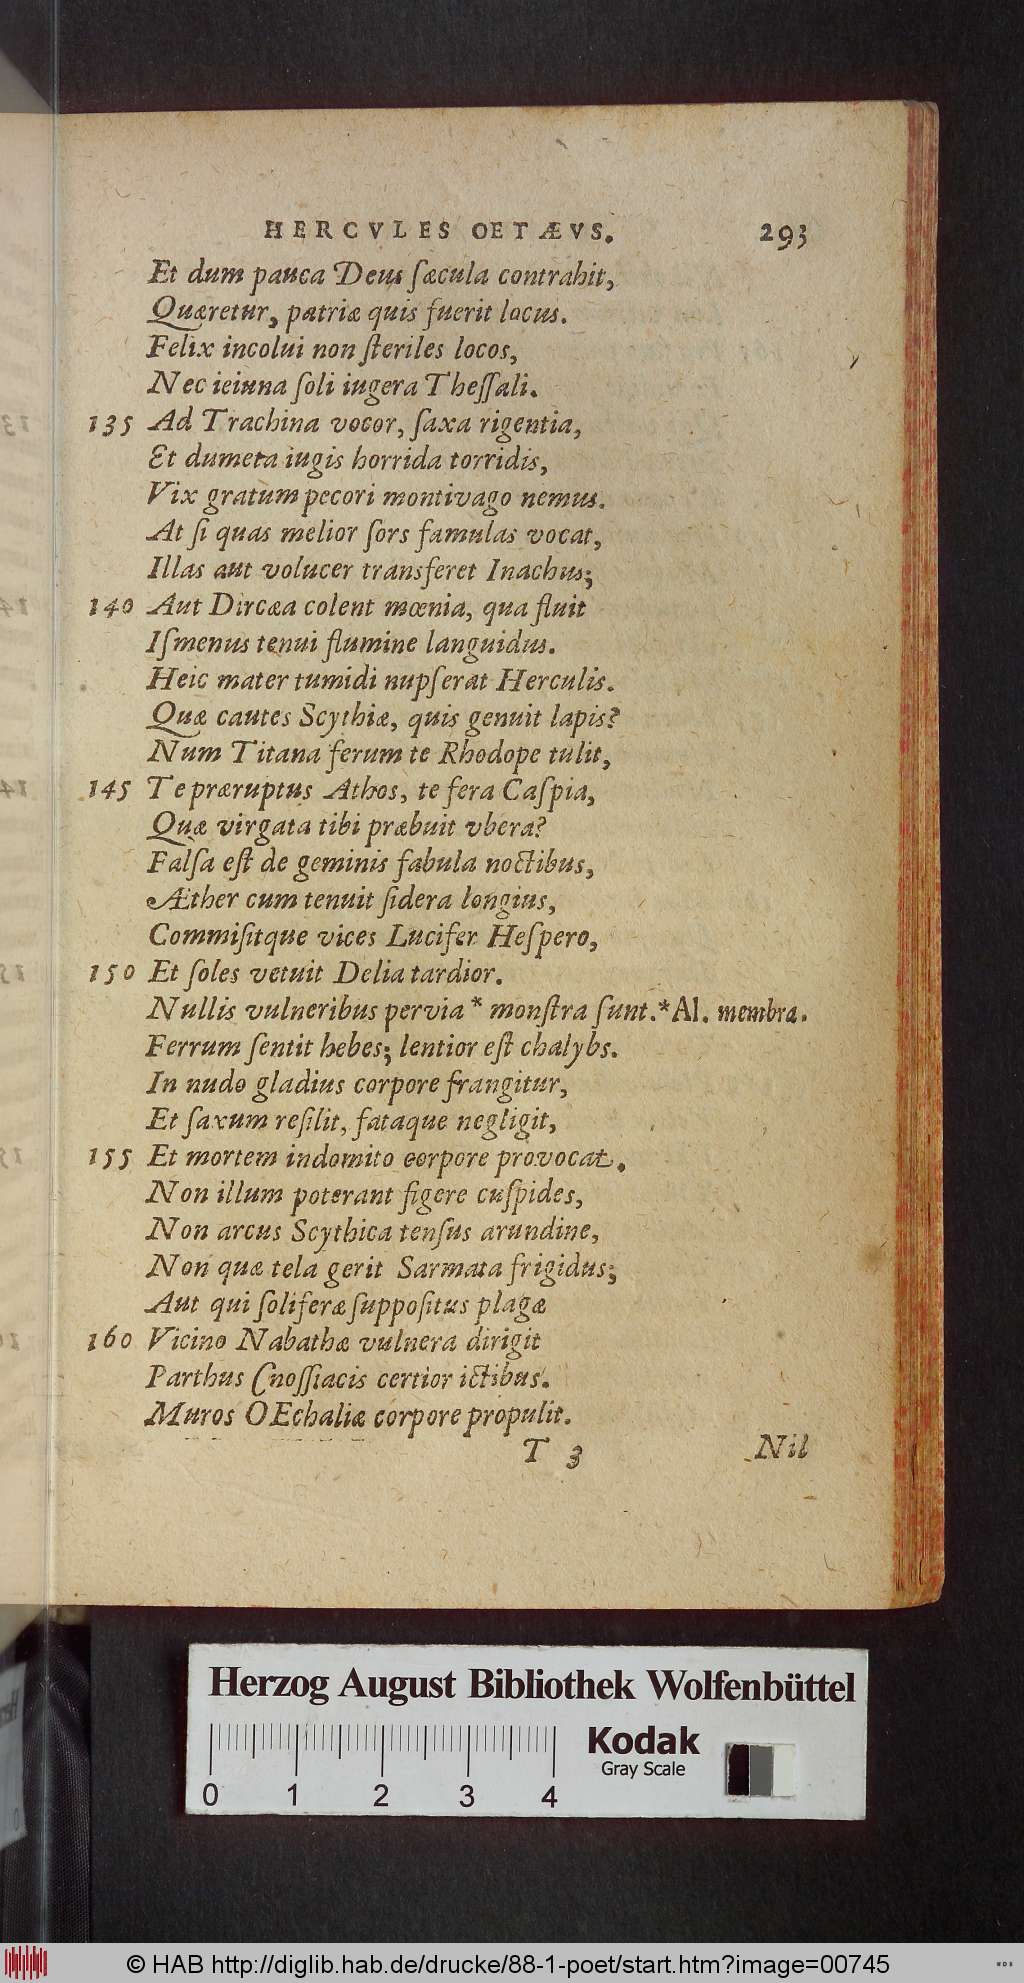 HERCVLES OETÆVS. 293
Et dum pauca Deus ſæcula contrahit,
Quæretur, patriæ quis fuerit locus.
Felix incolui non ſteriles locos,
Nec ieiuna ſoli iugera Theſſali.
135 Ad Trachina vocor, ſaxa rigentia,
Et dumeta iugis horrida torridis,
Vix gratum pecori montivago nemus.
At ſi quas melior ſors famulas vocat,
Illas aut volucer transferet Inachus;
140 Aut Dircæa colent mœnia, qua fluit
Iſmenus tenui flumine languidus.
Heic mater tumidi nupſerat Herculis.
Quæ cautes Scythiæ, quis genuit lapis?
Num Titana ferum te Rhodope tulit,
145 Te præruptus Athos, te fera Caſpia,
Quæ virgata tibi præbuit vbera?
Falſa eſt de geminis fabula noctibus,
Æther cum tenuit ſidera longius,
Commiſitque vices Lucifer Heſpero,
150 Et ſoles vetuit Delia tardior.
Nullis vulneribus pervia * monſtra ſunt. *Al. membra.
Ferrum ſentit hebes; lentior eſt chalybs.
In nudo gladius corpore frangitur,
Et ſaxum reſilit, fataque negligit,
155 Et mortem indomito corpore provocat.
Non illum poterant figere cuſpides,
Non arcus Scythica tenſus arundine,
Non quæ tela gerit Sarmata frigidus;
Aut qui ſoliferæ ſuppoſitus plagæ
160 Vicino Nabathæ vulnera dirigit
Parthus Cnoſſiacis certior ictibus.
Muros OEchaliæ corpore propulit.
T 3 Nil
Herzog August Bibliothek Wolfenbüttel
Kodak
Gray Scale
0 1 2 3 4
© HAB http://diglib.hab.de/drucke/88-1-poet/start.htm?image=00745